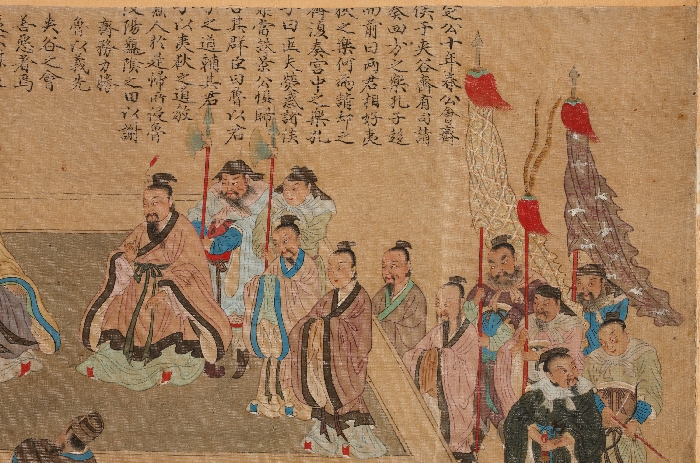 定公十年春公會齊
侯于夾谷齊有司請
奏四方之樂孔子趍
而前曰兩君相好夷
狄之樂何為諸却之
齊復奏宮中之樂孔
子曰匹夫熒惑諸侯
罪當誅景公懼歸
告其群臣曰魯以君
子之道輔其君
子以夷狄之道教
寡人於是歸所侵魯
汶陽龜陰之田以謝
齊務力勝
魯以義先
夾谷之會
善惡著焉